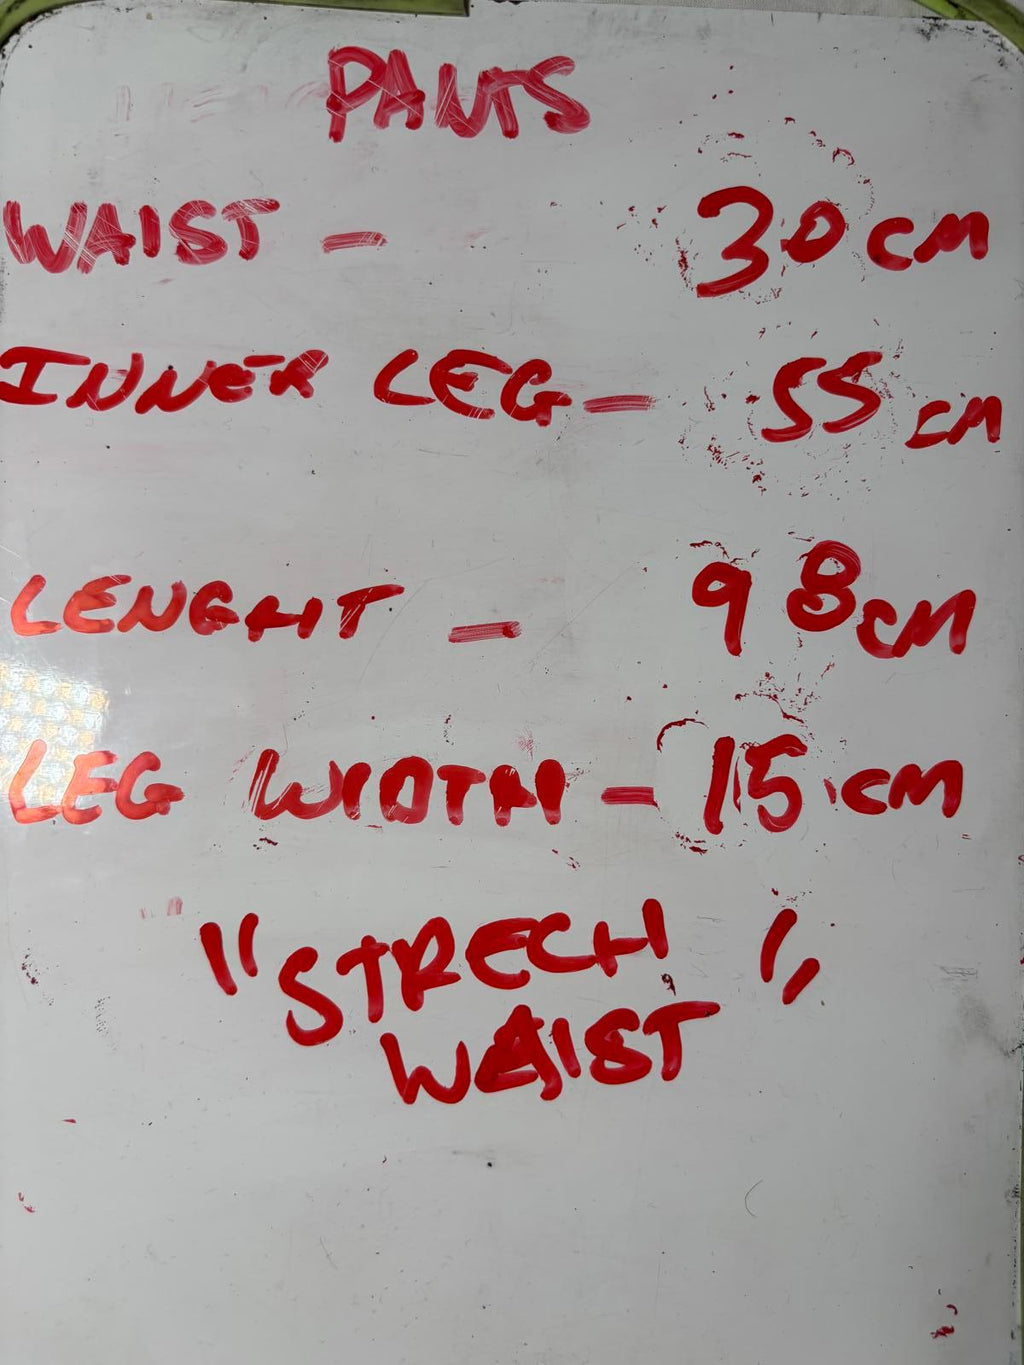 PANTS
WAIST - 30 CM
INNER LEG - 55 CM
LENGHT - 98 CM
LEG WIDTH - 15 CM
"STRECH "
WAIST